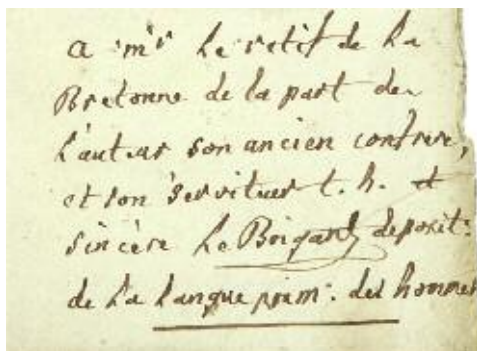 a mr Le retif de La
Bretonne de la part de
L'auteur son ancien confrere,
et son serviteur t. h. et
sincère Le Brigant deposit:
de La Langue prim: des hommes